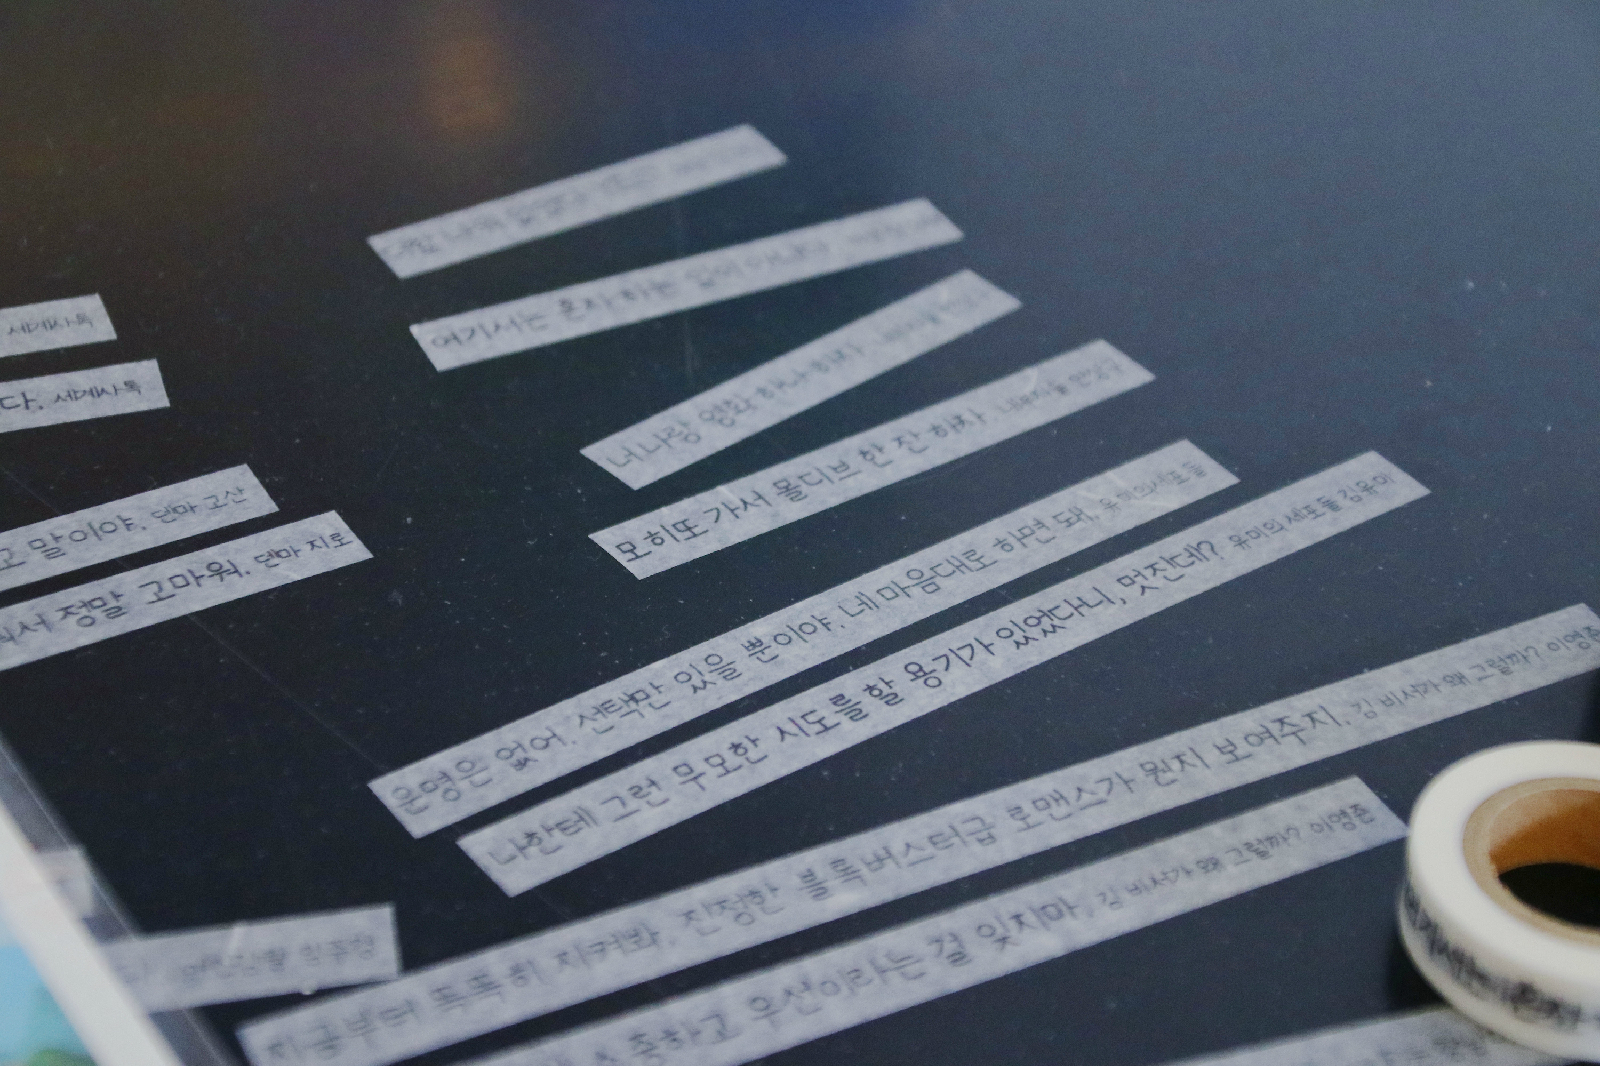 세계사톡
다. 세계사톡
고 말이야. 덴마 고산
서 정말 고마워. 덴마 지로
여기서는 혼자 하는 일이
너 나랑 영화 하나 하자.
모히또 가서 몰디브 한 잔 하자. 내부자들 안상구
운명은 없어. 선택만 있을 뿐이야. 네 마음대로 하면 돼. 유미의 세포들
나한테 그런 무모한 시도를 할 용기가 있었다니, 멋잔데? 유미의 세포들 김유미
지금부터 똑똑히 지켜봐. 진정한 블록버스터급 로맨스가 뭔지 보여주지. 김비서가 왜 그럴까? 이영준
소중하고 우선이라는 걸 잊지마. 김비서가 왜 그럴까? 이영준